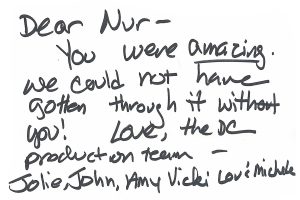 Dear Nur -
You were amazing.
we could not have
gotten through it without
you! Love, the DC
production team -
Jolie, John, Amy Vicki Lov & Michele